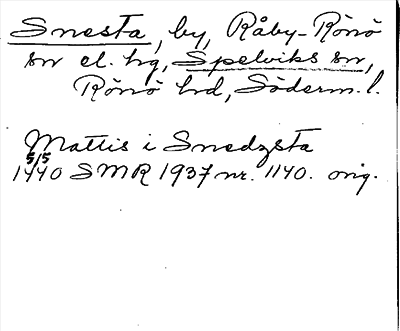 Snesta, by, Råby-Rönö
sn el. hg, Spelviks sn,
Rönö hd, Söderm. l.
Mattis i Snedzsta
5/5
1440 SMR 1937 nr. 1140. orig.